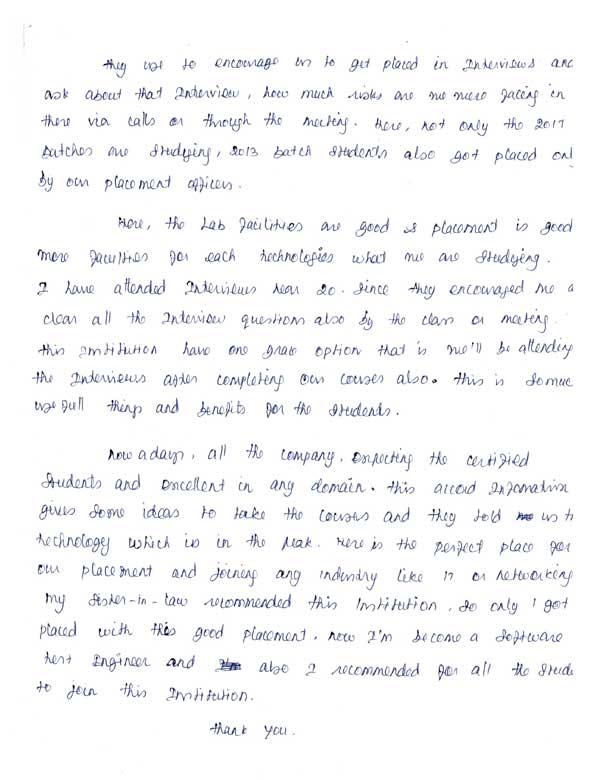 they use to encourage us to get placed in Interviews and
ask about that Interview, how much risks are we were facing in
there via calls or through the meeting. Here, not only the 2017
batches are studying, 2013 batch students also got placed only
by our placement officers.
Here, the Lab facilities are good & placement is good
more faculties for each technologies what we are studying.
I have attended Interviews near 20. Since they encouraged me a
clear all the Interview questions also by the class or meeting.
this Institution have one grate option that is we'll be attending
the Interviews after completing our courses also. this is so muc
usefull things and benefits for the students.
now a days, all the company. Expecting the certified
students and excellent in any domain. this accord Information
gives some ideas to take the courses and they told us t
technology which is in the peak. Here is the perfect place for
our placement and joining any industry like IT or networking
my sister-in-law recommended this Institution. So only I got
placed with this good placement. now I'm become a software
test Engineer and also I recommended for all the stude
to join this Institution.
thank you.